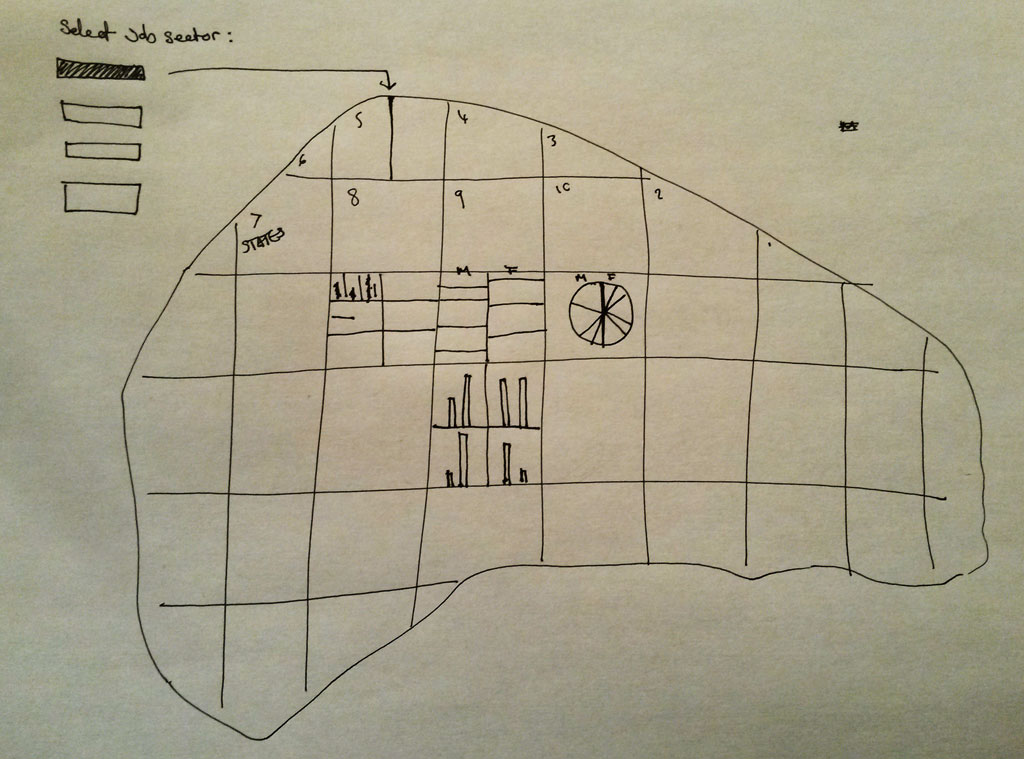 Select Job sector:
5
4
3
6
8
9
10
2
7
STATES
1
M F
M F